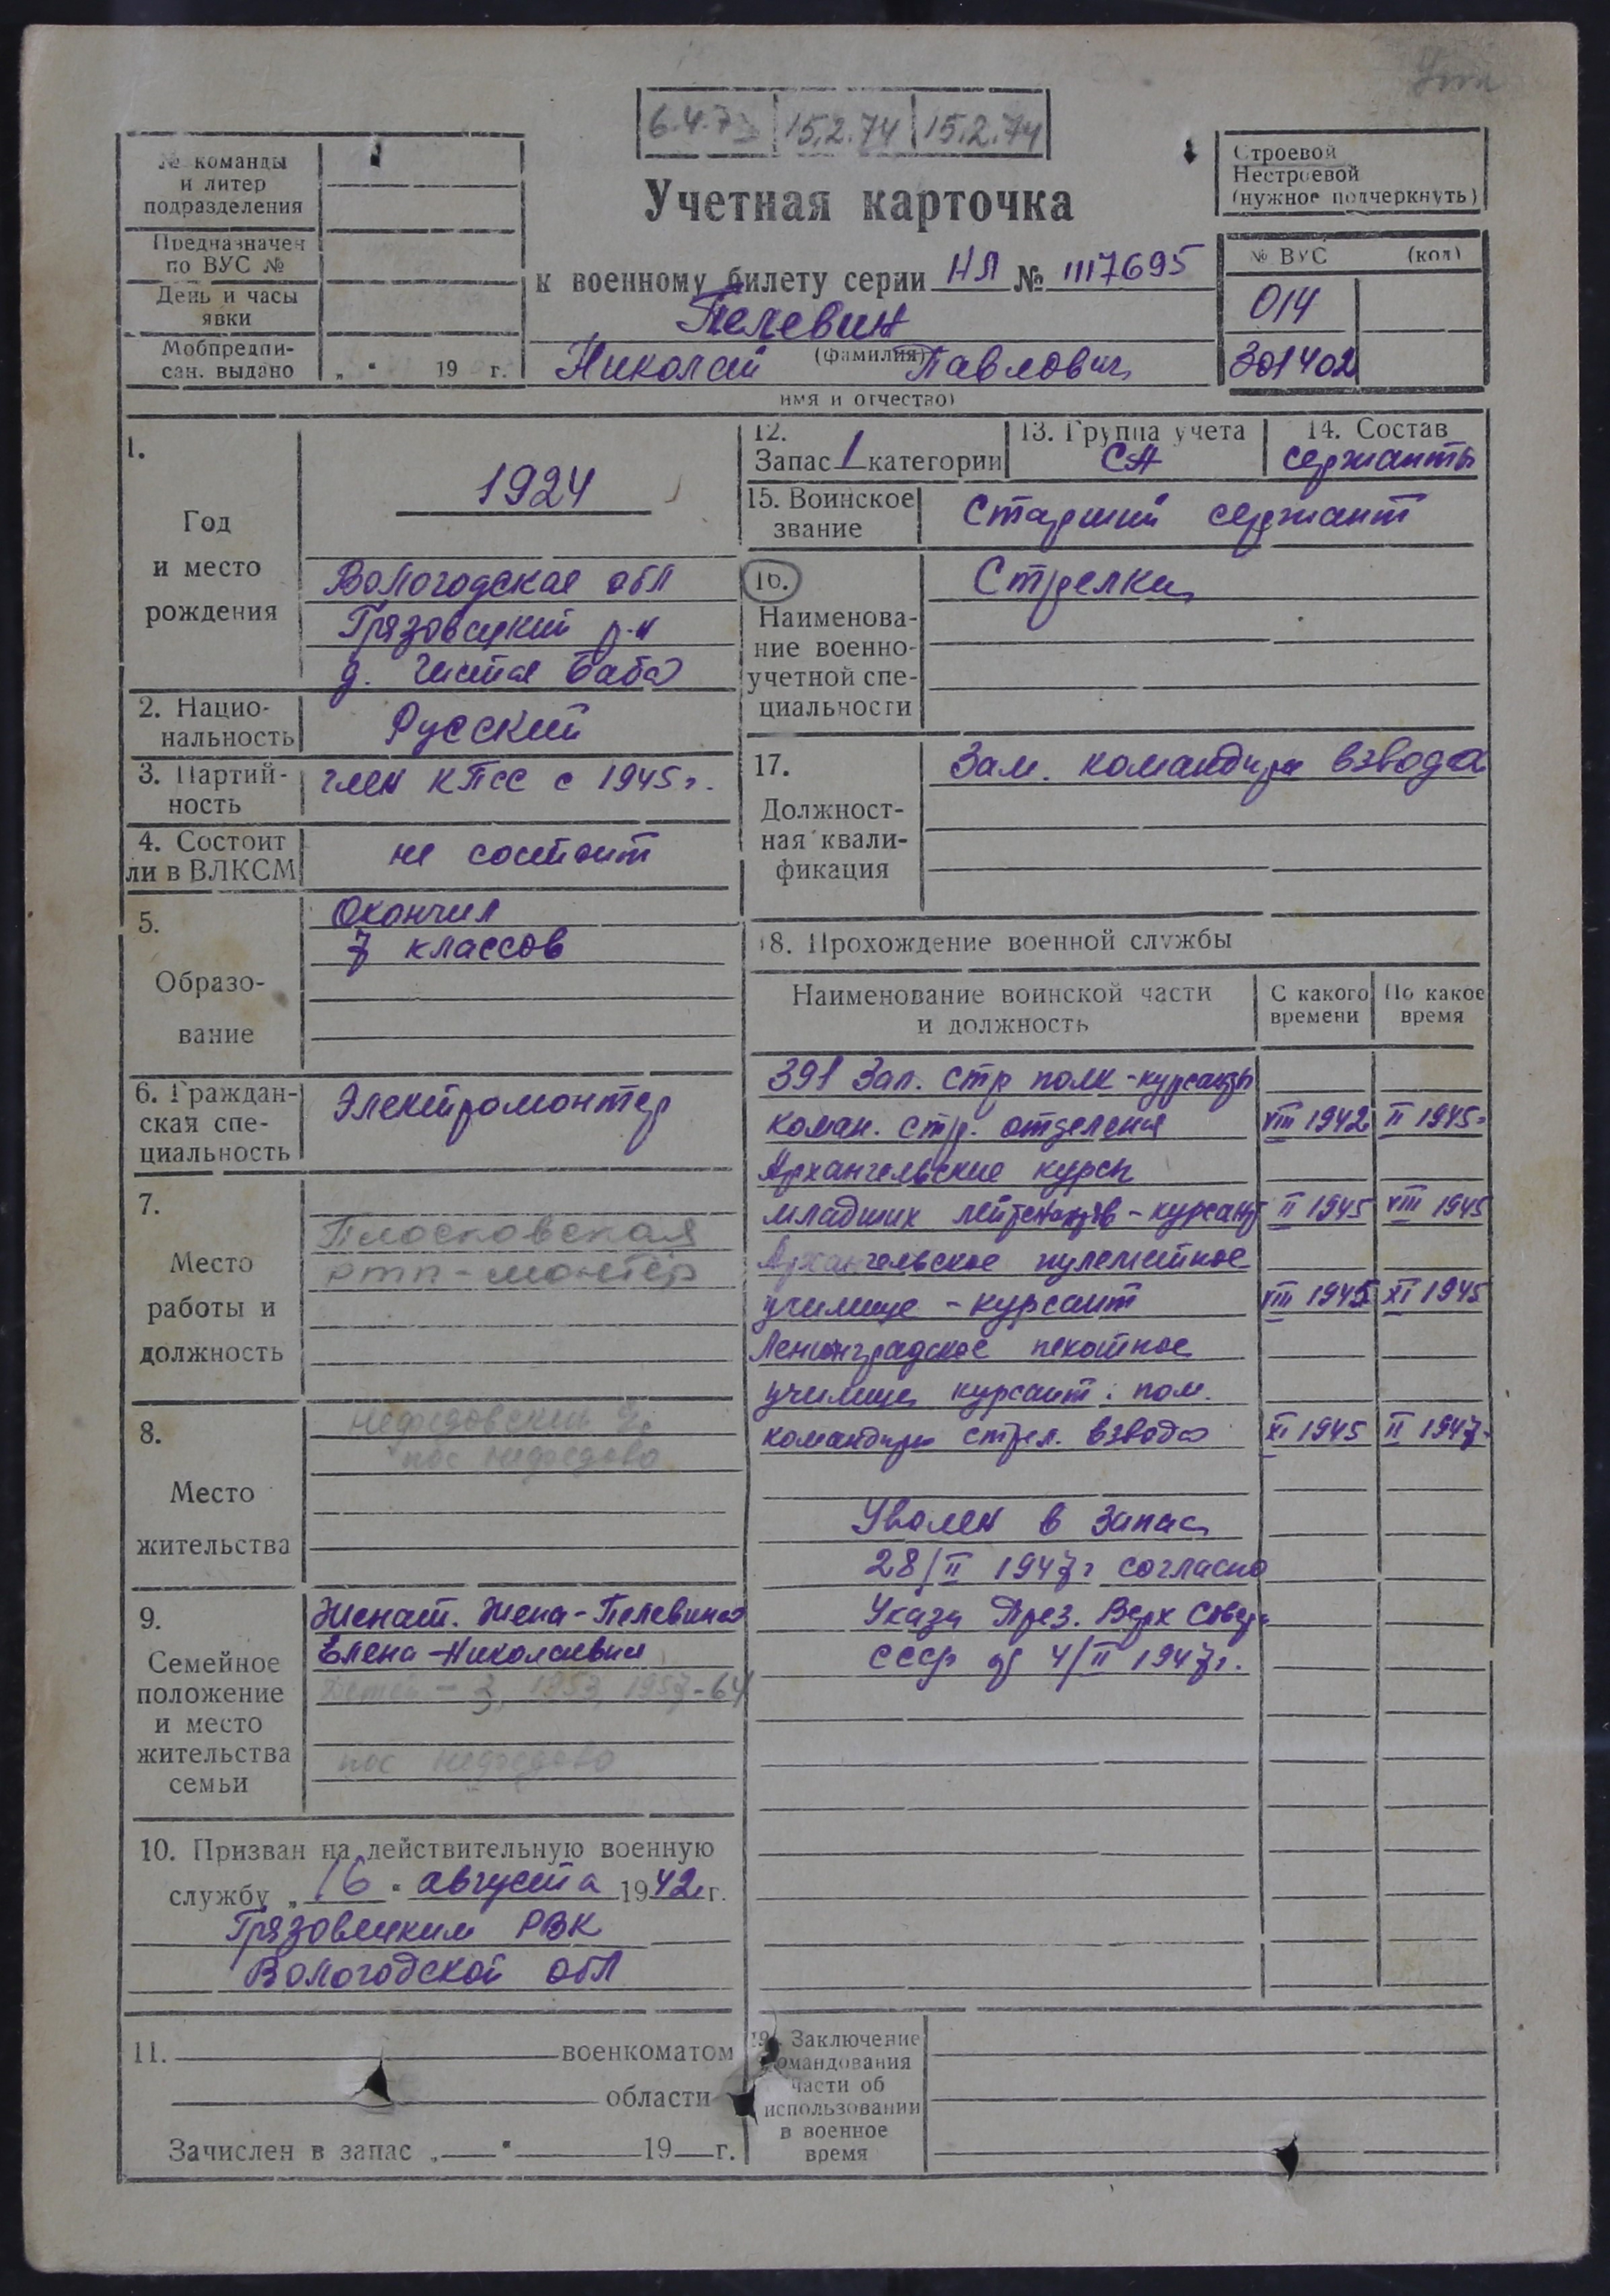 6.4.73 15.2.74 15.2.74
№ команды
и литер
подразделения
Предназначен
по ВУС №
День и часы
явки
Мобпредпи-
сан. выдано „ " 19 г.
Учетная карточка
к военному билету серии НЛ № 1117695
Пелевин
(фамилия)
Николай Павлович
имя и отчество)
Строевой
Нестроевой
(нужное подчеркнуть)
№ ВУС (код)
014
301402
1.
Год
и место
рождения
1924
Вологодская обл
Грязовецкий р-н
д. Чистая Баба
2. Нацио-
нальность
Русский
3. Партий-
ность
член КПСС с 1945г.
4. Состоит
ли в ВЛКСМ
не состоит
5.
Образо-
вание
Окончил
7 классов
6. Граждан-
ская спе-
циальность
Электромонтер
7.
Место
работы и
должность
Плосковская
РТП-монтёр
8.
Место
жительства
Нефедовский
пос Нефедово
9.
Семейное
положение
и место
жительства
семьи
Женат. Жена-Пелевина
Елена Николаевна
Детей - 3, 1953, 1957-64
пос Нефедово
10. Призван на действительную военную
службу „16" августа 1942г.
Грязовецким РВК
Вологодской обл
11. военкоматом
области
Зачислен в запас „ " 19 г.
12.
Запас 1 категории
13. Группа учета
СА
14. Состав
сержанты
15. Воинское
звание
Старший сержант
16.
Наименова-
ние военно-
учетной спе-
циальности
Стрелки
17.
Должност-
ная квали-
фикация
Зам. командира взвода
18. Прохождение военной службы
Наименование воинской части
и должность
С какого
времени
По какое
время
391 Зап. стр полк-курсант
коман. стр. отделения VIII 1942 II 1945
Архангельские курсы
младших лейтенантов-курсант II 1945 VIII 1945
Архангельское пулеметное
училище - курсант VIII 1945 XI 1945
Ленинградское пехотное
училище курсант: пом.
командира стрел. взвода XI 1945 II 1947
Уволен в запас
28/II 1947г согласно
Указа През. Верх Совета
СССР от 4/II 1947г.
19. Заключение
командования
части об
использовании
в военное
время